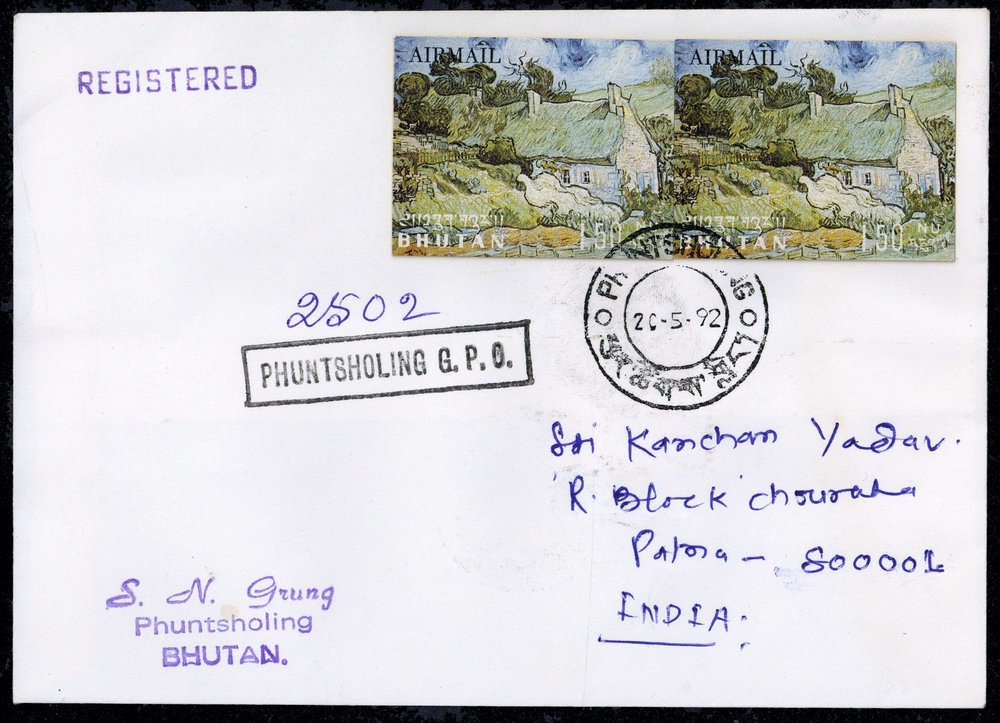 REGISTERED
AIRMAIL
AIRMAIL
འབྲུག
BHUTAN
1.50
BHUTAN
1.50 NU
2502
PHUNTSHOLING G. P. O.
20-5-92
Sri Kanchan Yadav.
R. Block Chouraha
Patna – 800001
INDIA.
S. N. Grung
Phuntsholing
BHUTAN.